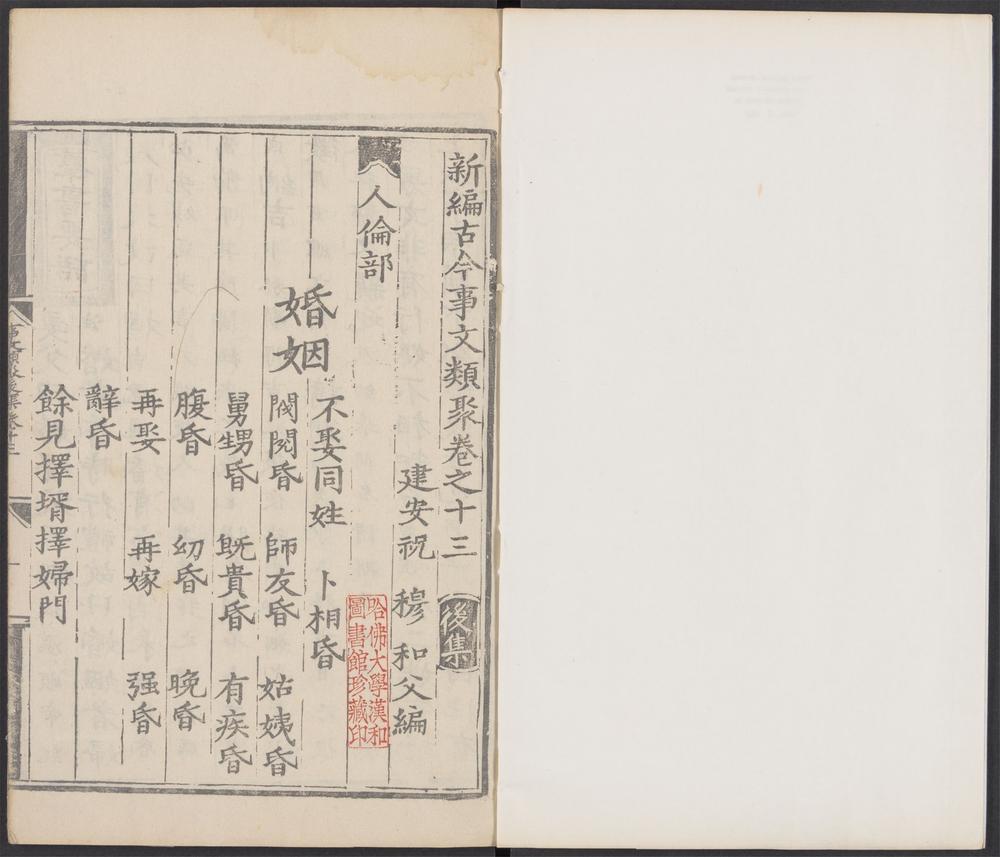 新編古今事文類聚卷之十三
後集
建安祝　穆　和父編
哈佛大學漢和
圖書館珍藏印
人倫部
婚姻
不娶同姓　卜相昏
閥閱昏　師友昏　姑姨昏
舅甥昏　既貴昏　有疾昏
腹昏　幼昏　晚昏
再娶　再嫁　强昏
辭昏
餘見擇壻擇婦門
事文類聚後集卷十三